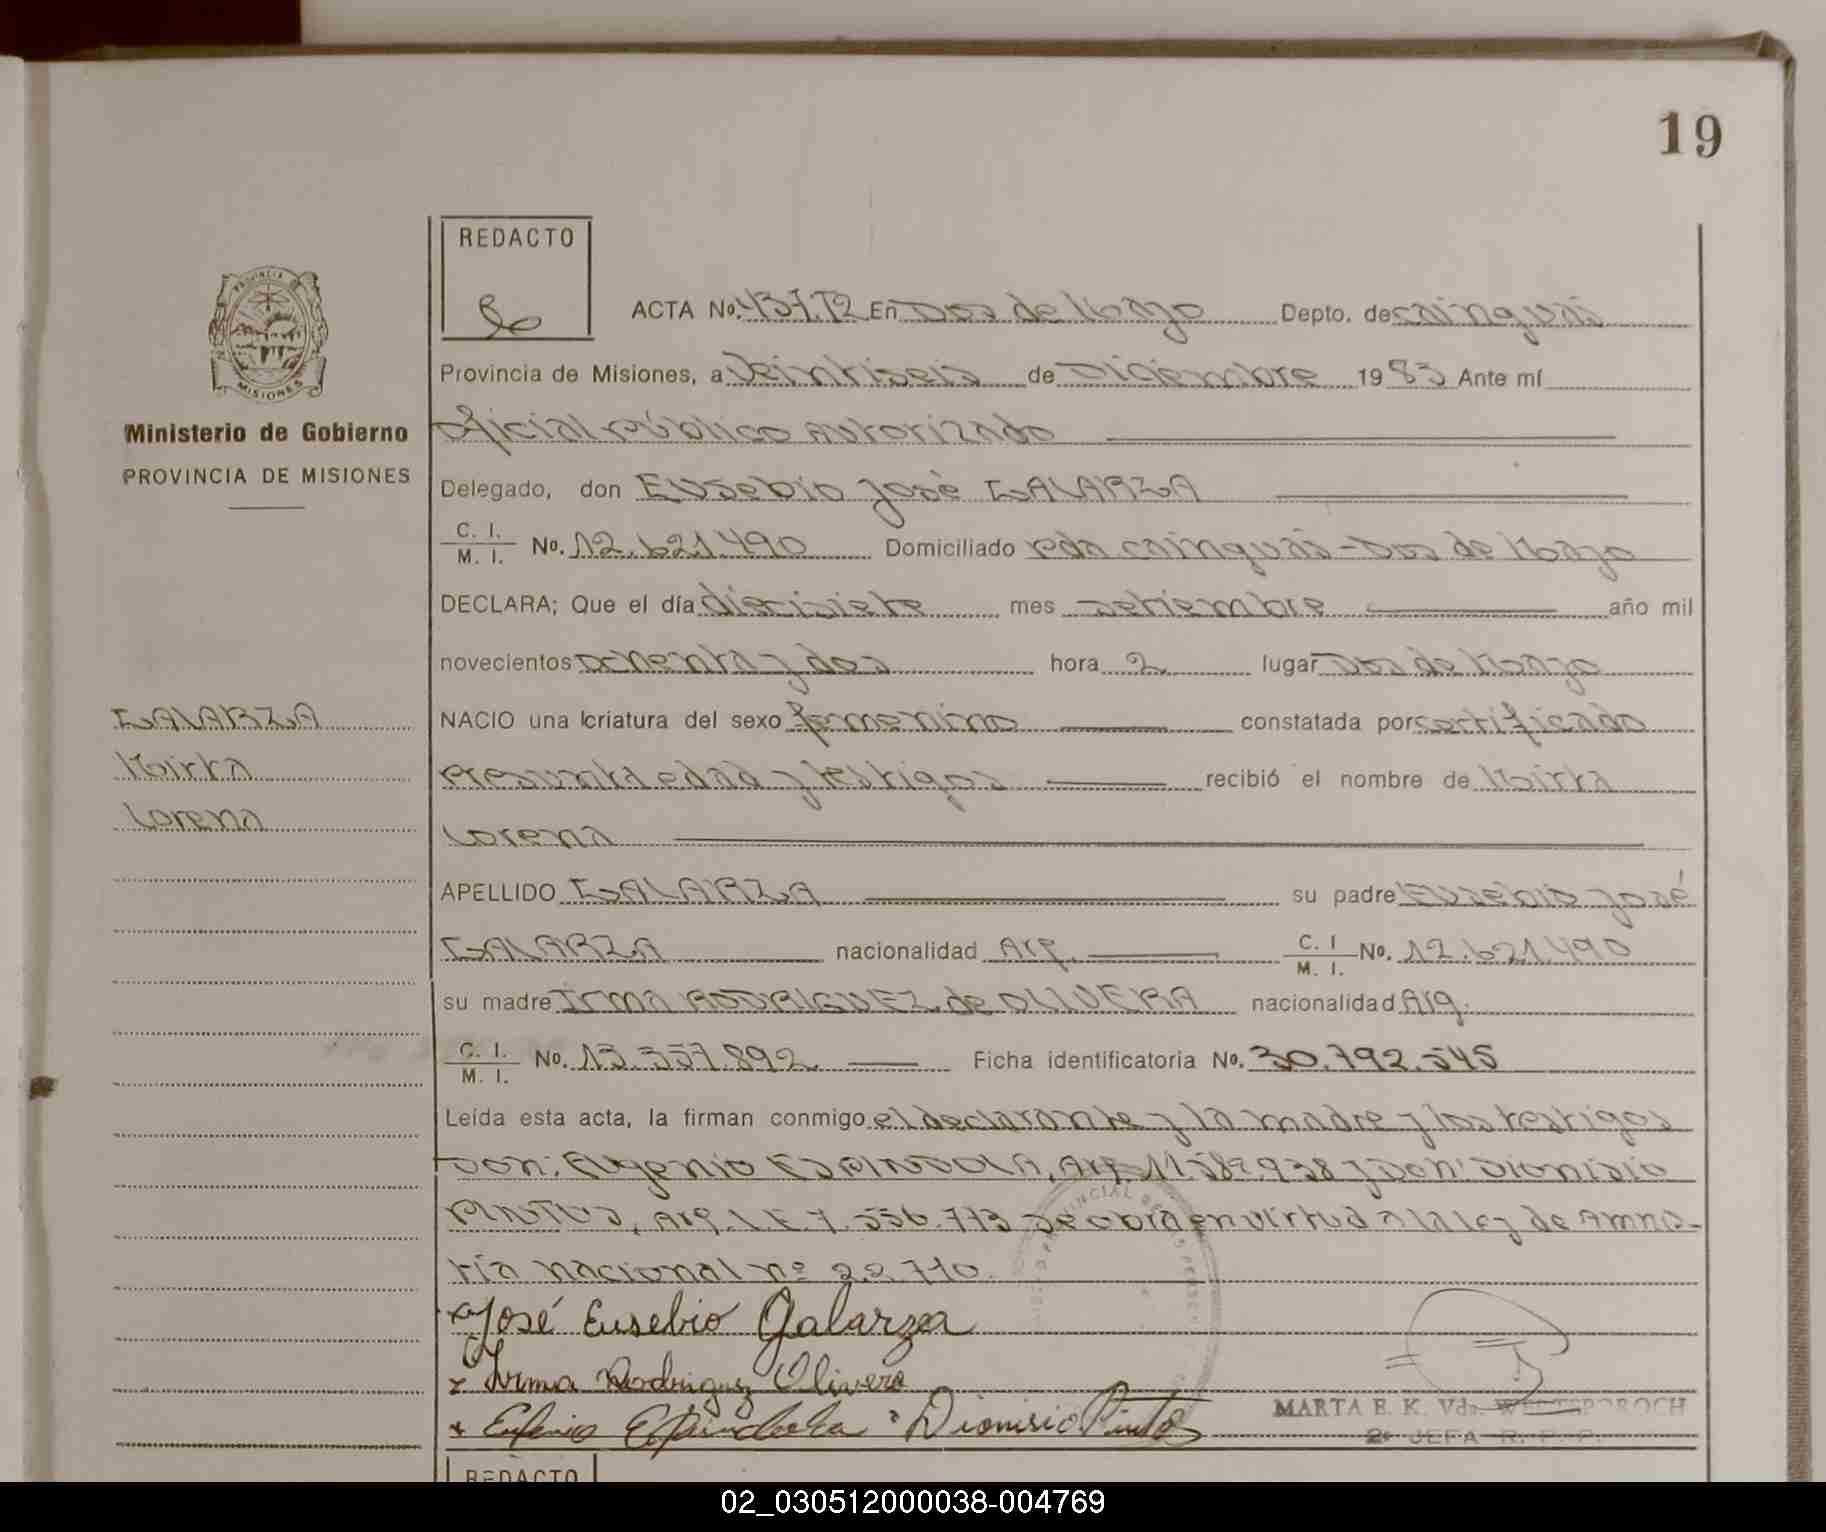 19
REDACTO
ACTA No. 437.T2 En Dos de Mayo Depto. de cainguás
PROVINCIA
MISIONES
Provincia de Misiones, a Veintiseis de Diciembre 1983 Ante mí
Ministerio de Gobierno
oficial público Autorizado
PROVINCIA DE MISIONES
Delegado, don Eusebio José GALARZA
C. I.
M. I. No. 12.621.490 Domiciliado pdo cainguás - Dos de Mayo
DECLARA; Que el día diecisiete mes setiembre año mil
novecientos ochenta y dos hora 2 lugar Dos de Mayo
GALARZA
NACIO una criatura del sexo femenino constatada por certificado
Mirta
presunta edad y testigos recibió el nombre de Mirta
Lorena
Lorena
APELLIDO GALARZA su padre Eusebio José
GALARZA nacionalidad Arg. C. I M. I. No. 12.621.490
su madre Irma RODRIGUEZ de OLIVERA nacionalidad Arg.
C. I.
M. I. No. 13.557.892 Ficha identificatoria No. 30.792.545
Leída esta acta, la firman conmigo el declarante y la madre y los testigos
Don: Eugenio ESPINDOLA, Arg. 11.589.938 y Don: Dionisio
PINTOS, Arg. L.E 7.556.773 se obra en virtud a la ley de Amnis-
tía nacional nº 22.710.
José Eusebio Galarza
Irma Rodriguez Olivera
Eugenio Espindola Dionisio Pinto
MARTA E. K. Vda. WESTSPOROCH
2º JEFA R. P. P.
REDACTO
02_030512000038-004769